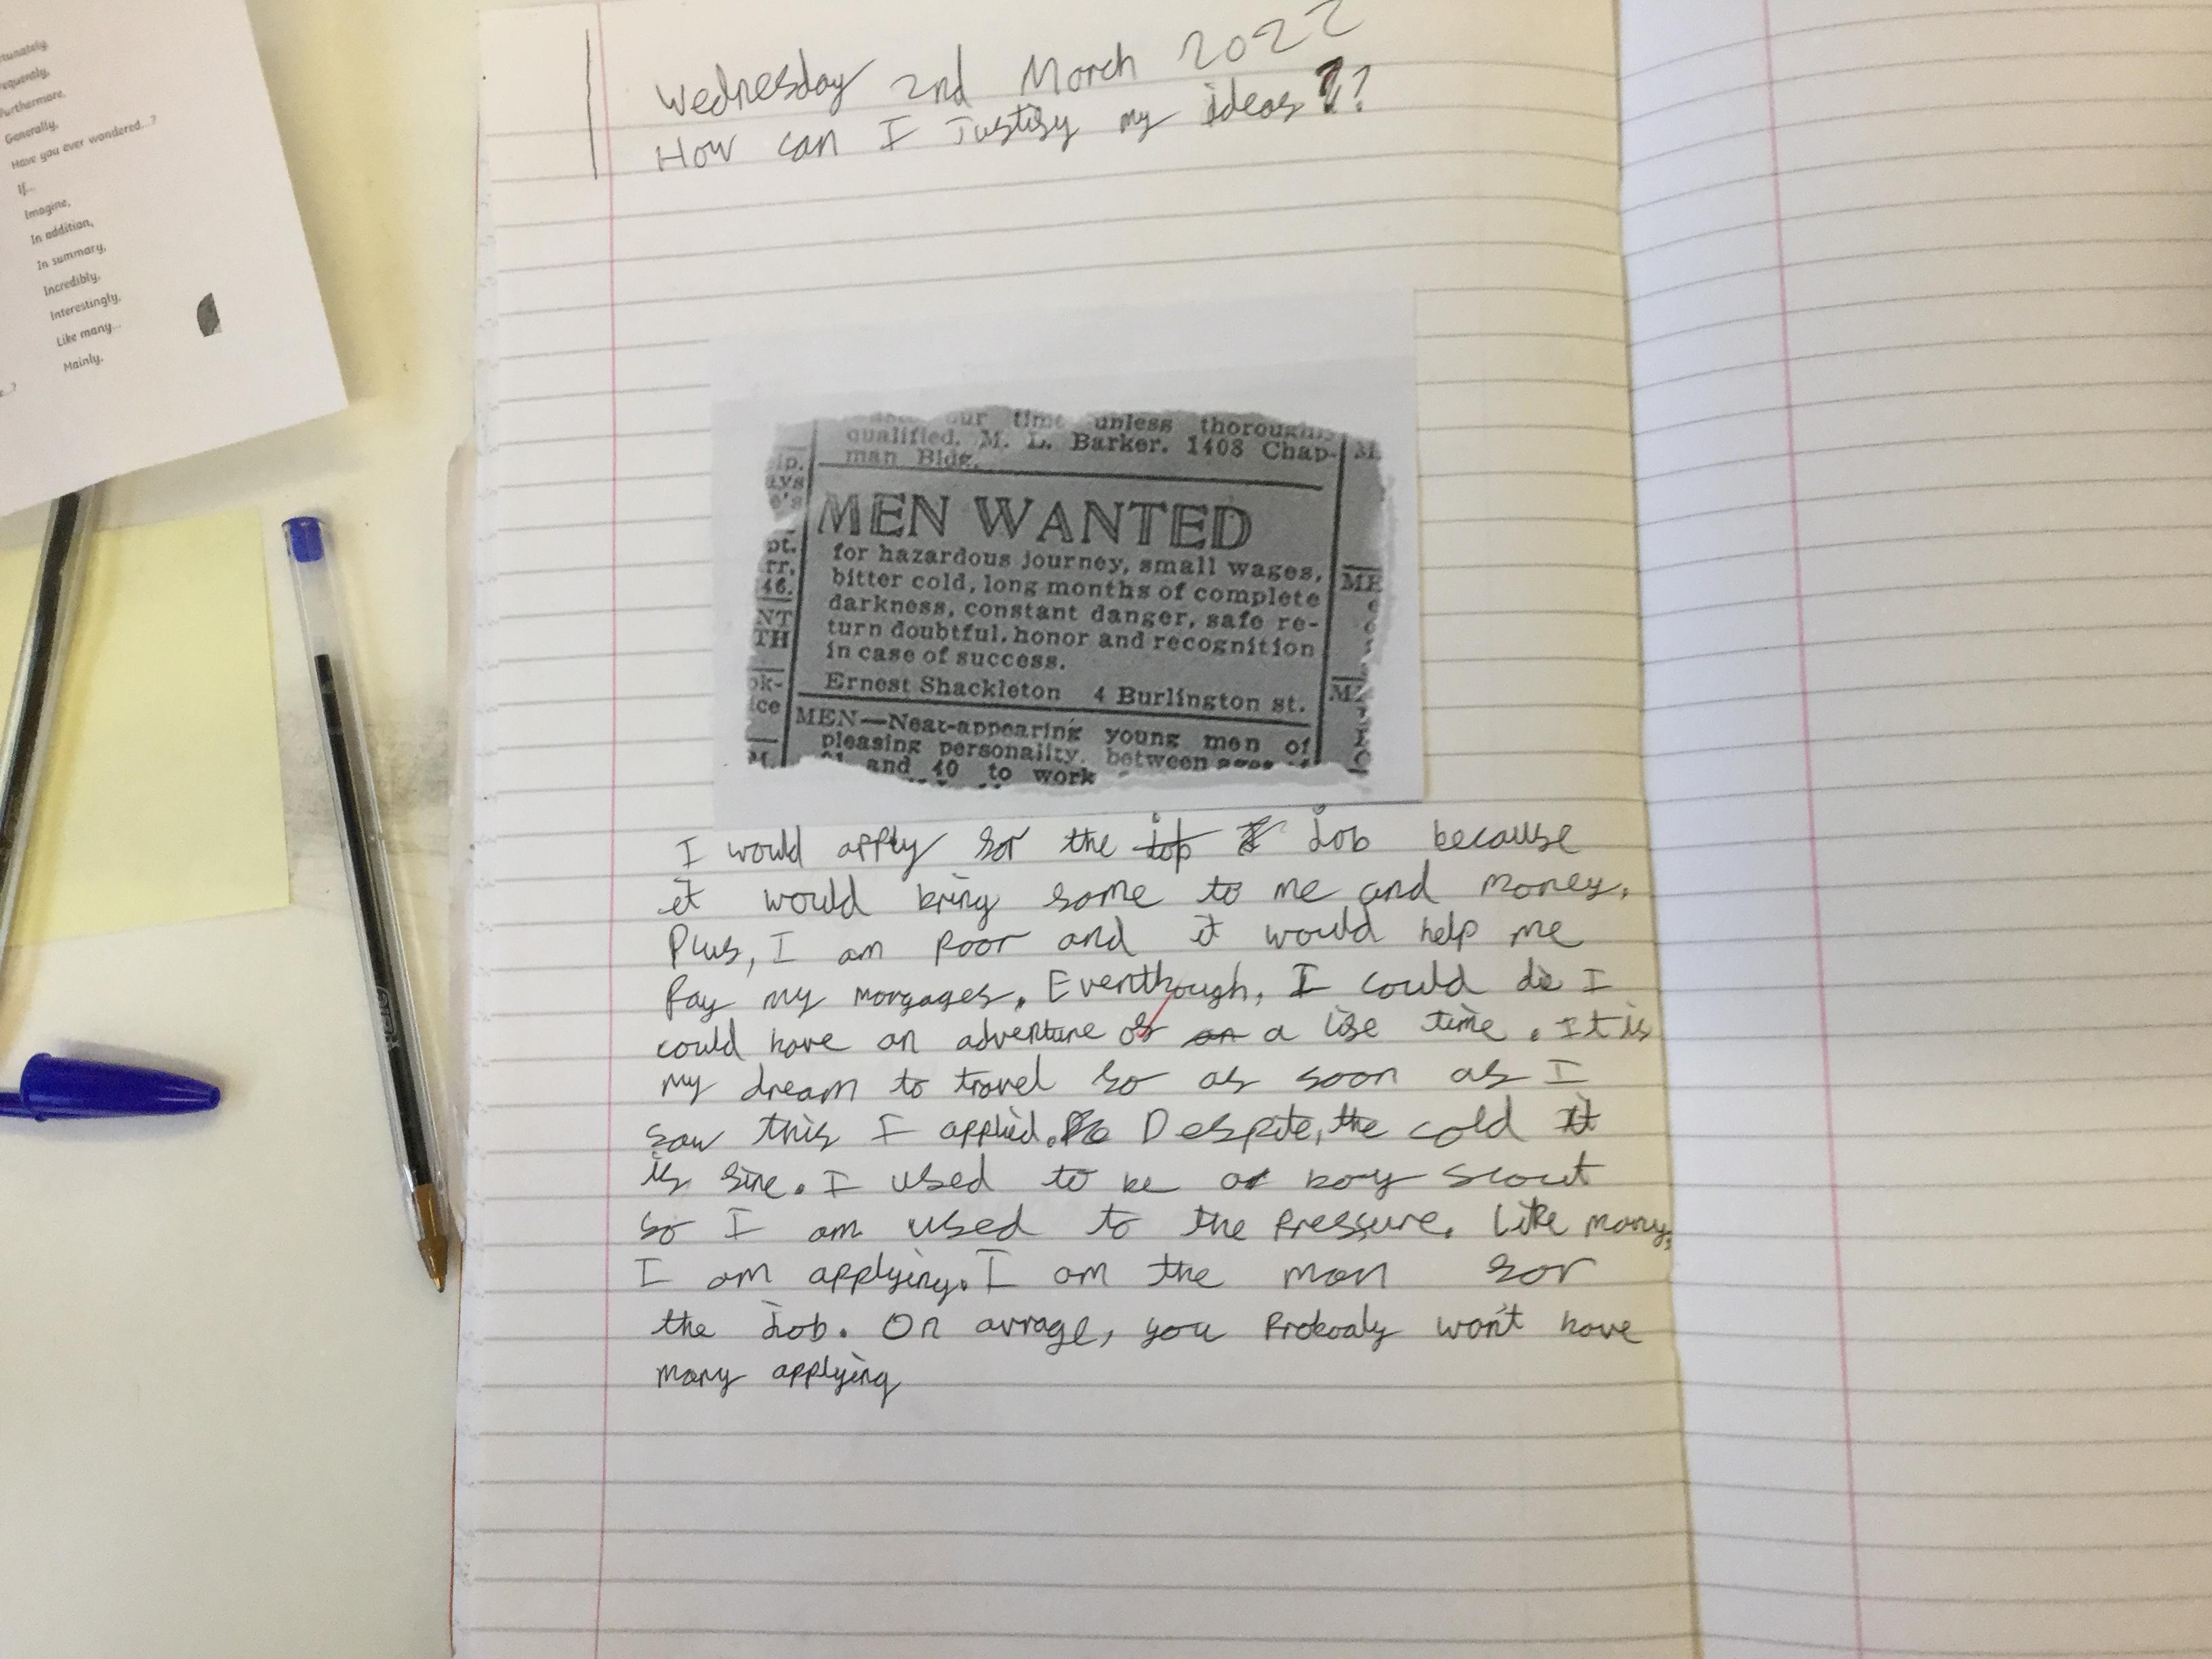 Furthermore,
Generally,
Have you ever wondered...?
If...
Imagine,
In addition,
In summary,
Incredibly,
Interestingly,
Like many...
Mainly,
Wednesday 2nd March 2022
How can I Justify my ideas ??
our time unless thoroughly
qualified. M. L. Barker. 1408 Chap-
man Bldg.
MEN WANTED
for hazardous journey, small wages,
bitter cold, long months of complete
darkness, constant danger, safe re-
turn doubtful, honor and recognition
in case of success.
Ernest Shackleton 4 Burlington st.
MEN—Neat-appearing young men of
pleasing personality, between ages of
21 and 40 to work
I would apply for the job job because
it would bring fame to me and money.
Plus, I am poor and it would help me
pay my morgages. Eventhough, I could die I
could have an adventure of an a life time. It is
my dream to travel so as soon as I
saw this I applied. Despite, the cold it
is fine. I used to be a boy scout
so I am used to the pressure. Like many,
I am applying. I am the man for
the job. On avrage, you probaly won't have
many applying